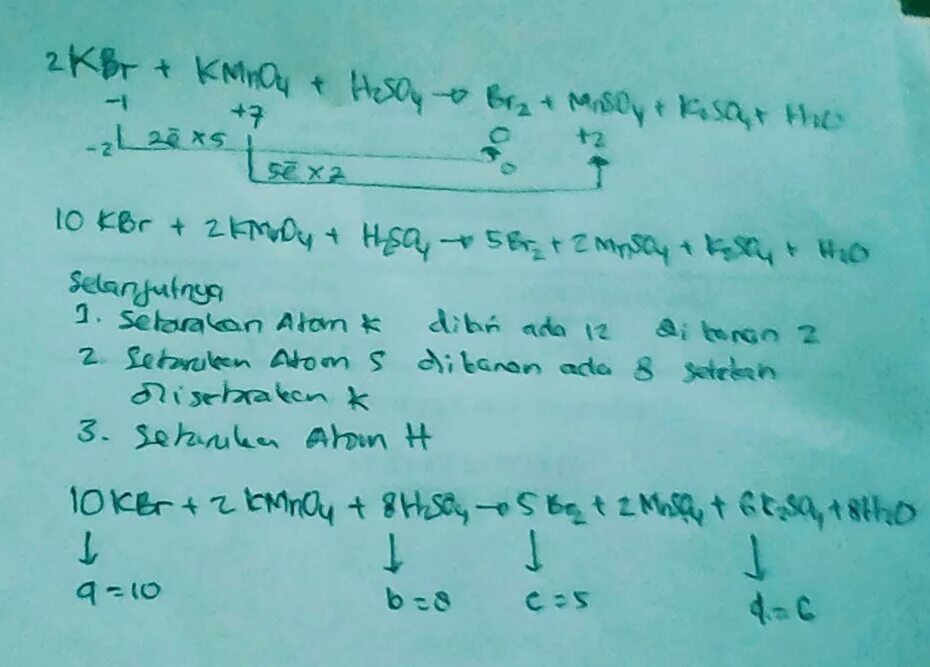 2KBr + KMnO4 + H2SO4 → Br2 + MnSO4 + K2SO4 + H2O
-1 +7 0 +2
-2 2ē x 5 0
5ē x 2
10 KBr + 2KMnO4 + H2SO4 → 5Br2 + 2MnSO4 + K2SO4 + H2O
Selanjutnya
1. Setarakan Atom K dikiri ada 12 di kanan 2
2. Setarakan Atom S dikanan ada 8 setelah
disetarakan K
3. Setarakan Atom H
10KBr + 2KMnO4 + 8H2SO4 → 5Br2 + 2MnSO4 + 6K2SO4 + 8H2O
↓ ↓ ↓ ↓
a = 10 b = 8 c = 5 d = 6